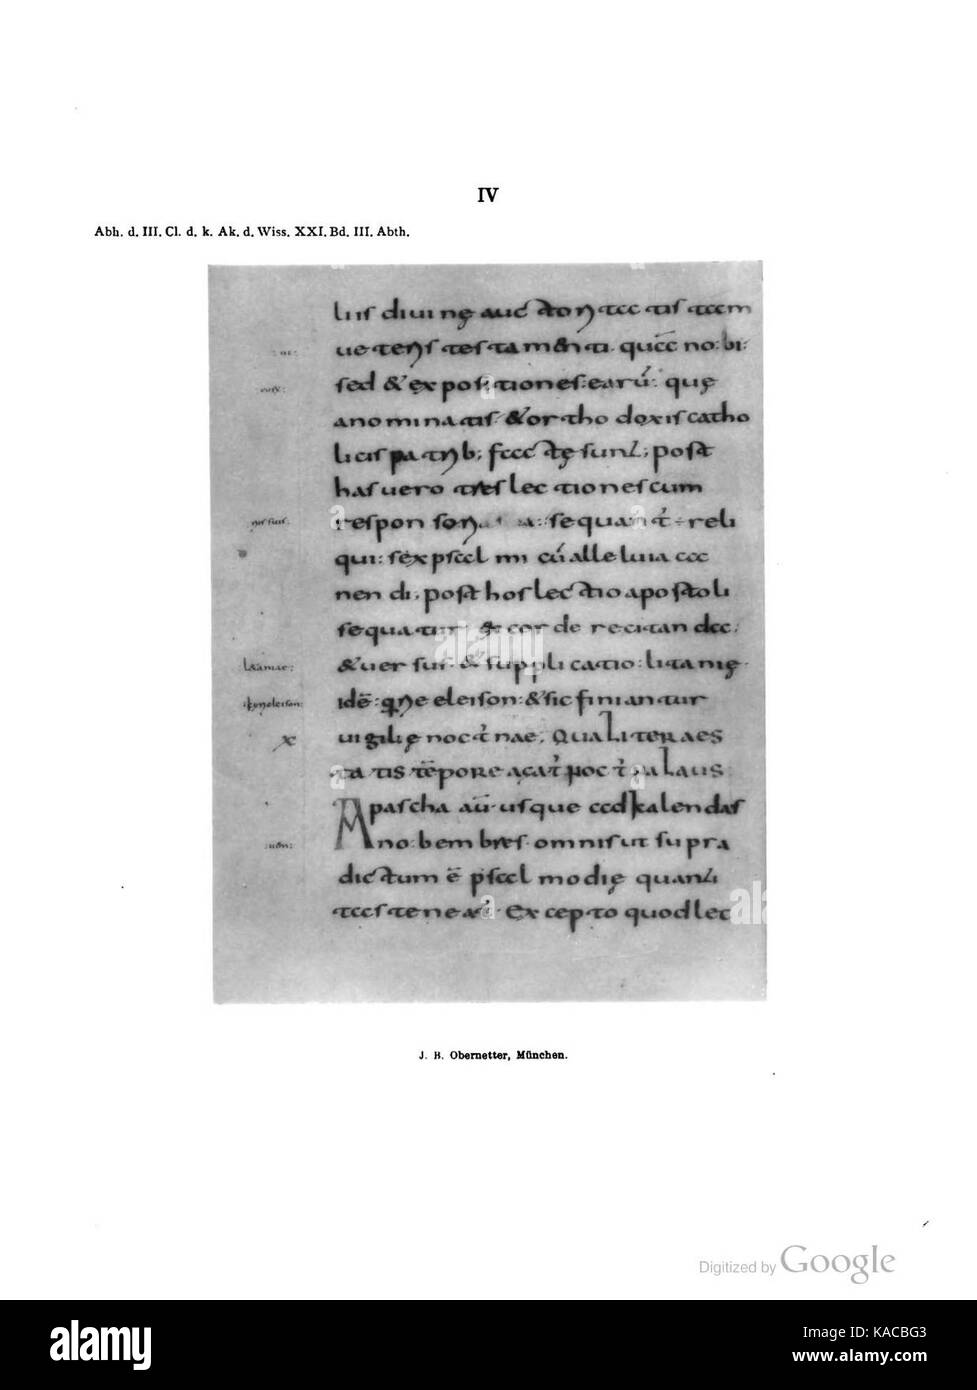 IV
Abh. d. III. Cl. d. k. Ak. d. Wiss. XXI. Bd. III. Abth.
liis diuinę auctoritatis tam
ueteris testamenti. quā no:bi:
sed & expositiones:earū: quę
anominatis & orthodoxis catho
licis patrib; factę sunt; post
has uero tres lectiones cum
respon sequant reli
qui: sex psalmi cū alleluia ca
nendi; post hos lectio apostoli
sequatur & corde recitanda;
& uersus. & supplicatio: litanię
idē: qrie eleison: & sic finiantur
uigilię noct nae. Qualiter aes
tatis tēpore agat noct laus
A pascha aū usque ad kalendas
no:bembres. omnis ut supra
dictum ē psalmodię quanti
tas teneat. Excepto quod lec
eorū:
nis suis:
letaniae:
kyrieleison:
x
:uem:
J. B. Obernetter, München.
Digitized by Google
a
alamy
alamy
Image ID: KACBG3
www.alamy.com